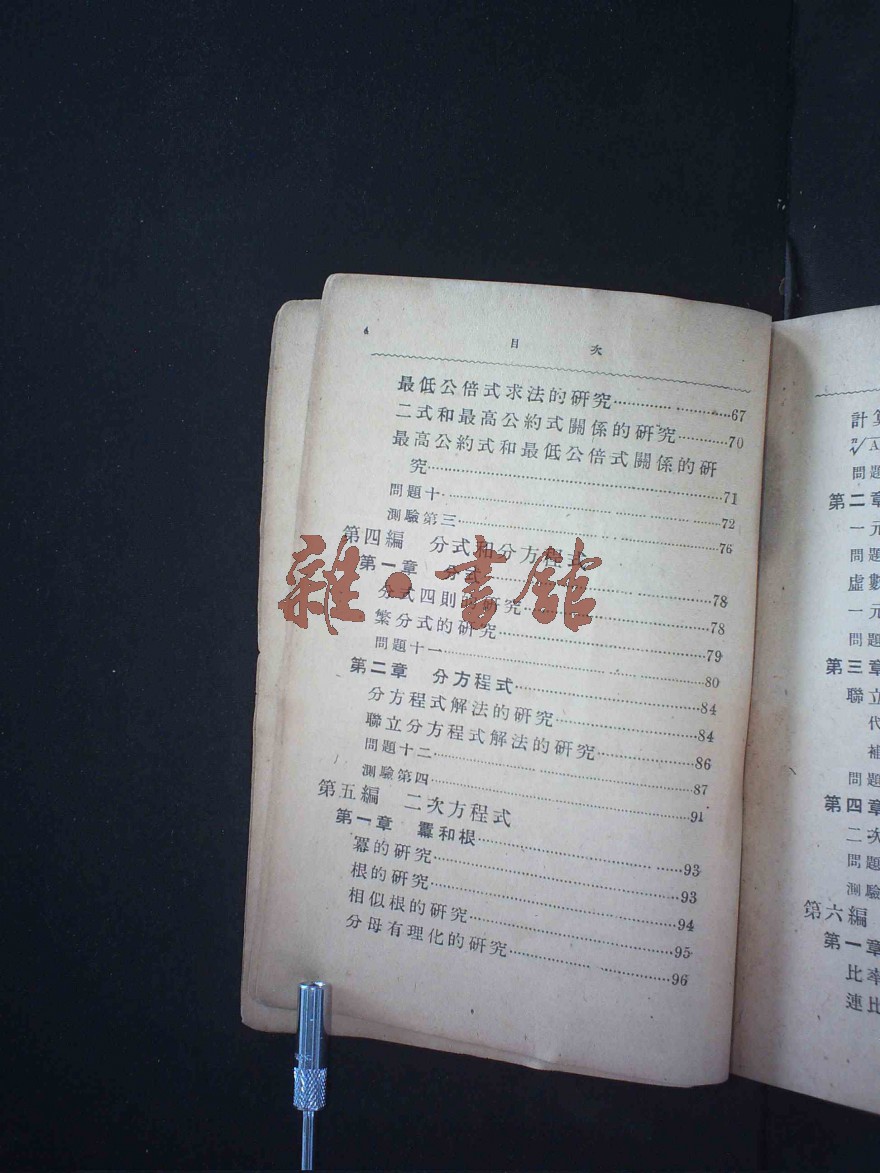 6
目 次
最低公倍式求法的研究……………………67
二式和最高公約式關係的研究…………70
最高公約式和最低公倍式關係的研
究……………………………………………71
問題十……………………………………72
測驗第三…………………………………76
第四編 分式和分方程式
第一章 分式……………………………78
分式四則的研究…………………………78
繁分式的研究……………………………79
問題十一…………………………………80
第二章 分方程式………………………84
分方程式解法的研究……………………84
聯立分方程式解法的研究………………86
問題十二…………………………………87
測驗第四…………………………………91
第五編 二次方程式
第一章 羃和根…………………………93
羃的研究…………………………………93
根的研究…………………………………94
相似根的研究……………………………95
分母有理化的研究………………………96
雜·書館
計算
問題
第二章
一元
問題
虛數
一元
問題
第三章
聯立
代
補
問題
第四章
二次
問題
測驗
第六編
第一章
比率
連比